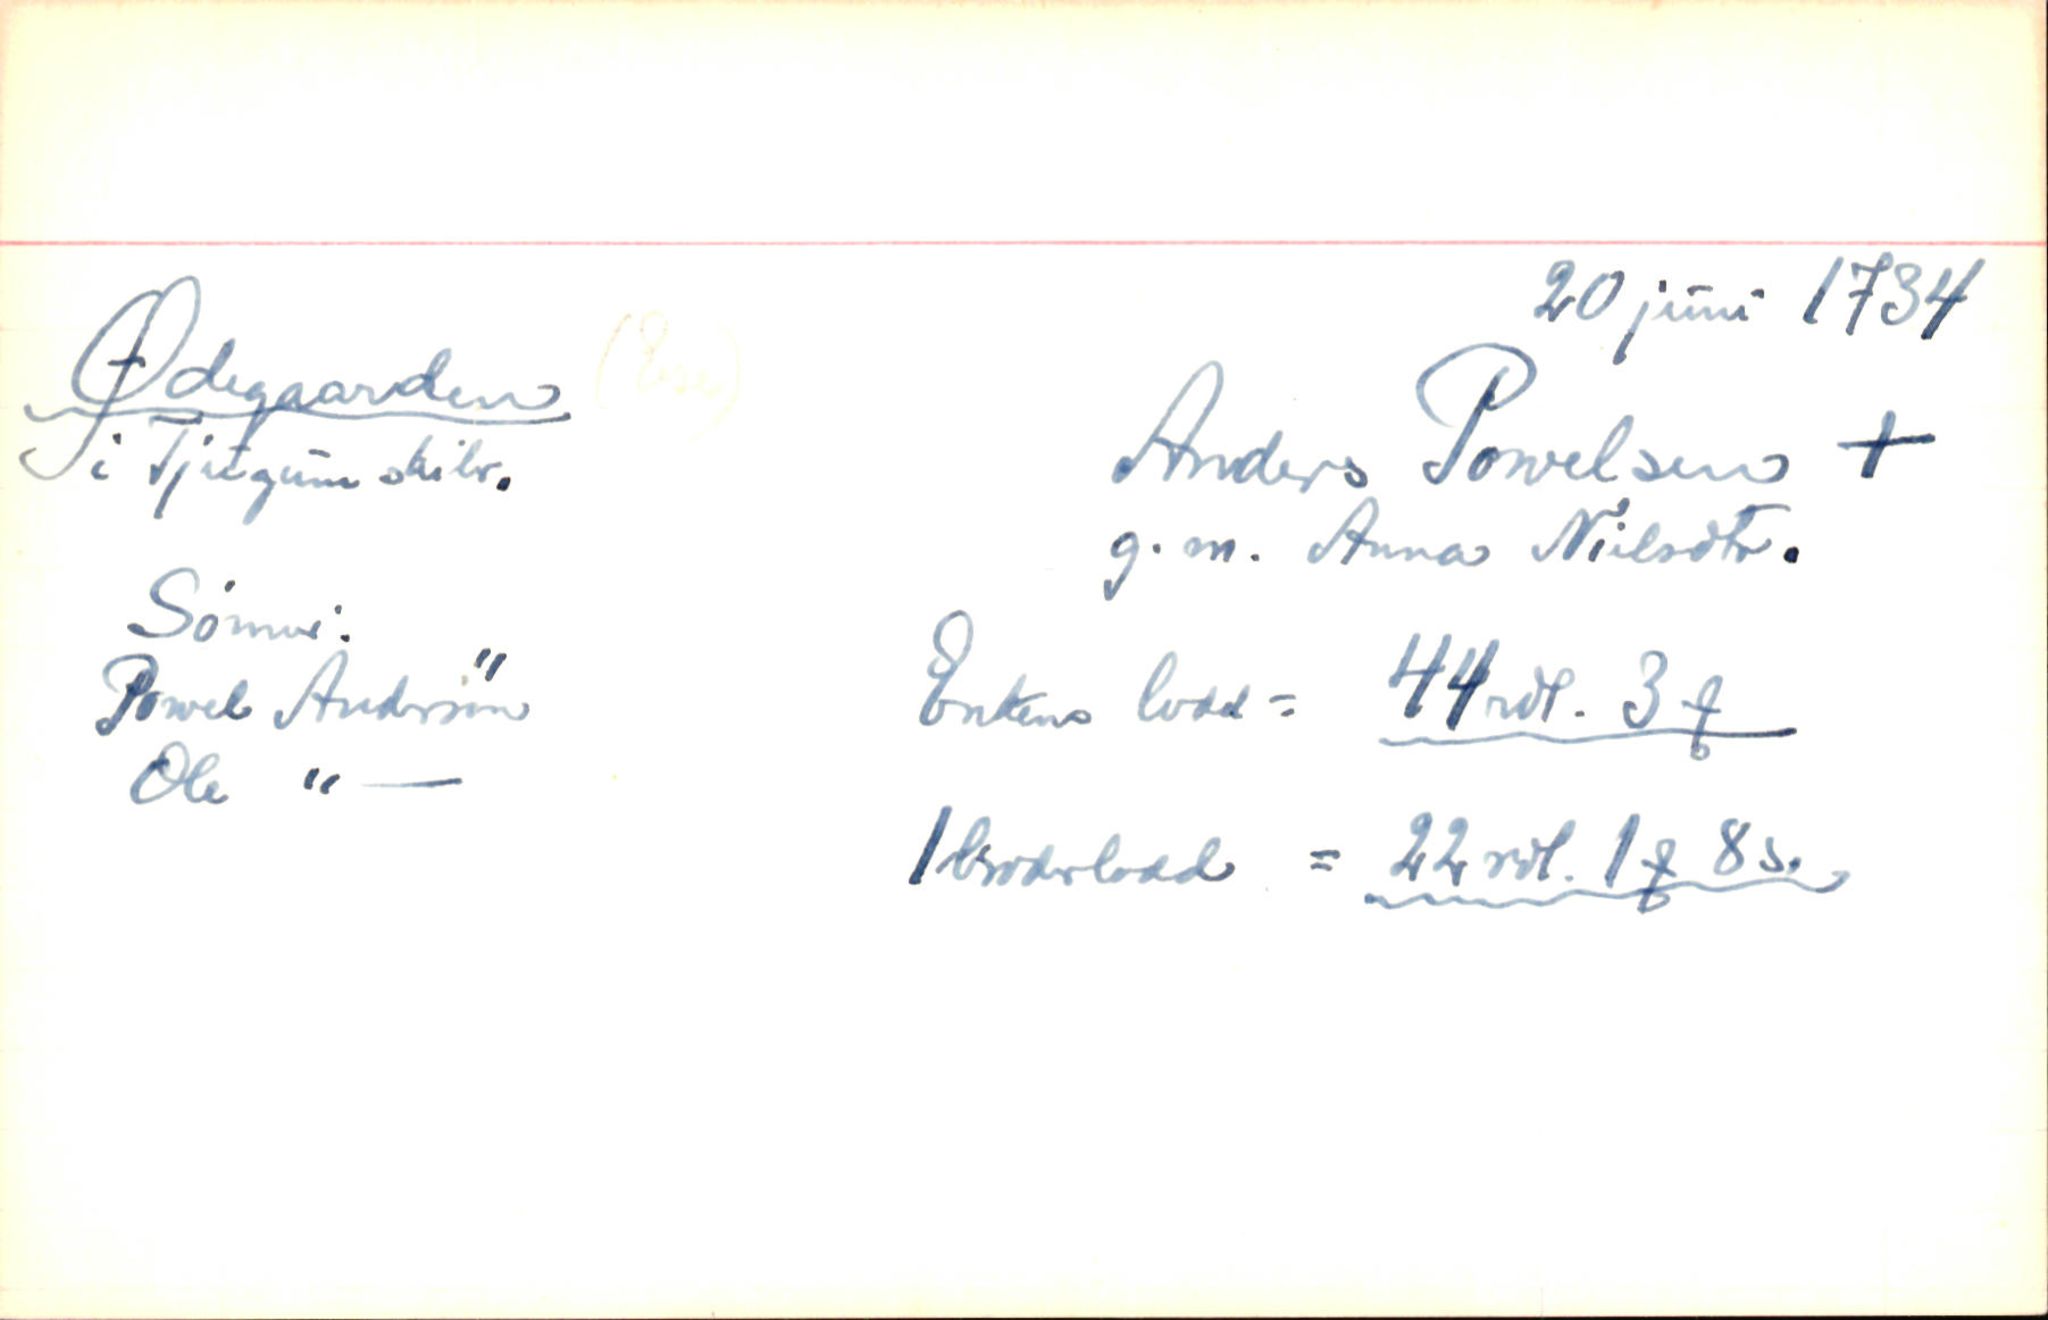 20 juni 1734
Ødegaarden
i Tjugum skibr.
Anders Powelsen +
g. m. Anna Nielsdtr.
Sønner:
Powel Andersøn "
Ole " —
Enkens lodd = 44 rdl. 3 ℔
1 broderlodd = 22 rdl. 1 ℔ 8 s.